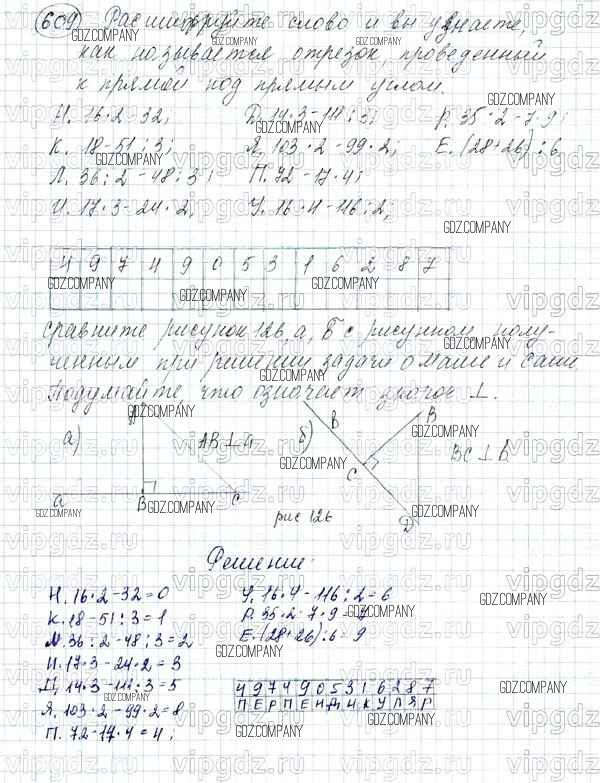 609 Расшифруйте слово и вы узнаете,
как называется отрезок, проведенный
к прямой под прямым углом.
Н. 16·2-32; Д. 14·3-111:3; Р. 35·2-7·9;
К. 18-51:3; Я. 103·2-99·2; Е. (28+26):6
Л. 36:2-48:3; П. 72-17·4;
И. 17·3-24·2; У. 16·4-116:2;
4 9 7 4 9 0 5 3 1 6 2 8 7
сравните рисунок 126, а, б с рисунком полу-
ченным при решении задачи о Маше и Саше
Подумайте, что означает значок ⊥.
а) A AB⊥a б) B B BC⊥
a B C C D
рис 126
Решение:
Н. 16·2-32=0 У. 16·4-116:2=6
К. 18-51:3=1 Р. 35·2-7·9=7
Л. 36:2-48:3=2 Е. (28+26):6=9
И. 17·3-24·2=3
Д. 14·3-111:3=5
Я. 103·2-99·2=8
П. 72-17·4=4;
4 9 7 4 9 0 5 3 1 6 2 8 7
П Е Р П Е Н Д И К У Л Я Р
GDZ.COMPANY
vipgdz.ru